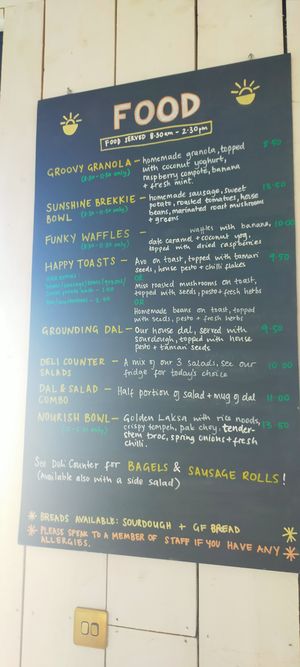 FOOD
FOOD SERVED 8.30am - 2.30pm
GROOVY GRANOLA - homemade granola, topped 8.50
(8.30 - 11.30 only) with coconut yoghurt,
raspberry compote, banana
+ fresh mint.
SUNSHINE BREKKIE - homemade sausage, sweet 13.50
BOWL potato, roasted tomatoes, house
(8.30 - 11.30 only) beans, marinated roast mushrooms
+ greens
FUNKY WAFFLES - waffles with banana, 10.00
(8.30 - 11.30 only) date caramel + coconut yog,
topped with dried raspberries
HAPPY TOASTS - Avo on toast, topped with tamari 9.50
seeds, house pesto + chilli flakes
OR
Miso roasted mushrooms on toast,
topped with seeds, pesto + fresh herbs
OR
Homemade beans on toast, topped
with seeds, pesto + fresh herbs
GROUNDING DAL - Our house dal, served with 9.50
sourdough, topped with house
pesto + tamari seeds
DELI COUNTER - A mix of our 3 salads, see our 10.00
SALADS fridge for today's choice
DAL & SALAD - Half portion of salad + mug of dal 11.00
COMBO
NOURISH BOWL - Golden Laksa with rice noods, 13.50
crispy tempeh, pak choy, tender-
stem broc, spring onions + fresh
chilli.
See Deli Counter for BAGELS & SAUSAGE ROLLS!
(Available also with a side salad)
* BREADS AVAILABLE: SOURDOUGH + GF BREAD *
* PLEASE SPEAK TO A MEMBER OF STAFF IF YOU HAVE ANY *
ALLERGIES.